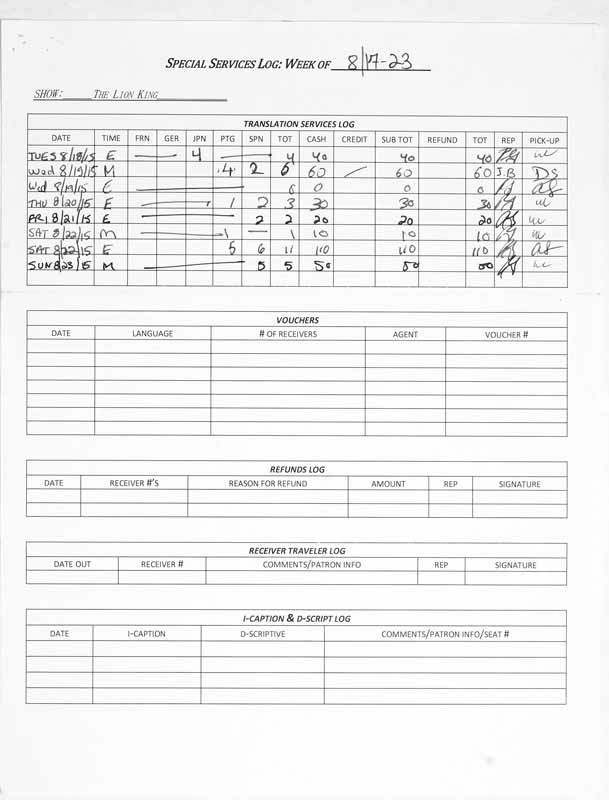 SPECIAL SERVICES LOG: WEEK OF 8/17-23
SHOW: THE LION KING
TRANSLATION SERVICES LOG
DATE TIME FRN GER JPN PTG SPN TOT CASH CREDIT SUB TOT REFUND TOT REP PICK-UP
TUES 8/18/15 E 4 4 40 40 40
Wed 8/19/15 M 4 2 6 60 60 60 J.B DS
Wd 8/19/15 E 0 0 0 0 as
THU 8/20/15 E 1 2 3 30 30 30
FRI 8/21/15 E 2 2 20 20 20
SAT 8/22/15 M 1 — 1 10 10 10
SAT 8/22/15 E 5 6 11 110 110 110 as
SUN 8/23/15 M 5 5 50 50 50
VOUCHERS
DATE LANGUAGE # OF RECEIVERS AGENT VOUCHER #
REFUNDS LOG
DATE RECEIVER #'S REASON FOR REFUND AMOUNT REP SIGNATURE
RECEIVER TRAVELER LOG
DATE OUT RECEIVER # COMMENTS/PATRON INFO REP SIGNATURE
I-CAPTION & D-SCRIPT LOG
DATE I-CAPTION D-SCRIPTIVE COMMENTS/PATRON INFO/SEAT #